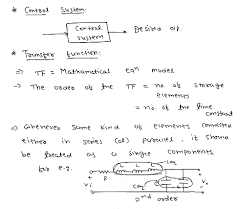 * Control System:
Control system
Desired o/p
* Transfer function:
⇒ TF = Mathematical eqn model
⇒ The order of the TF = no. of storage elements
= no. of the time constant
⇒ Whenever same kind of elements connected
either in series (or) parallel, it should
be treated as a single components
for e.g.
Leq
L L
R
Vi
Ceq
C
Vo
2nd order